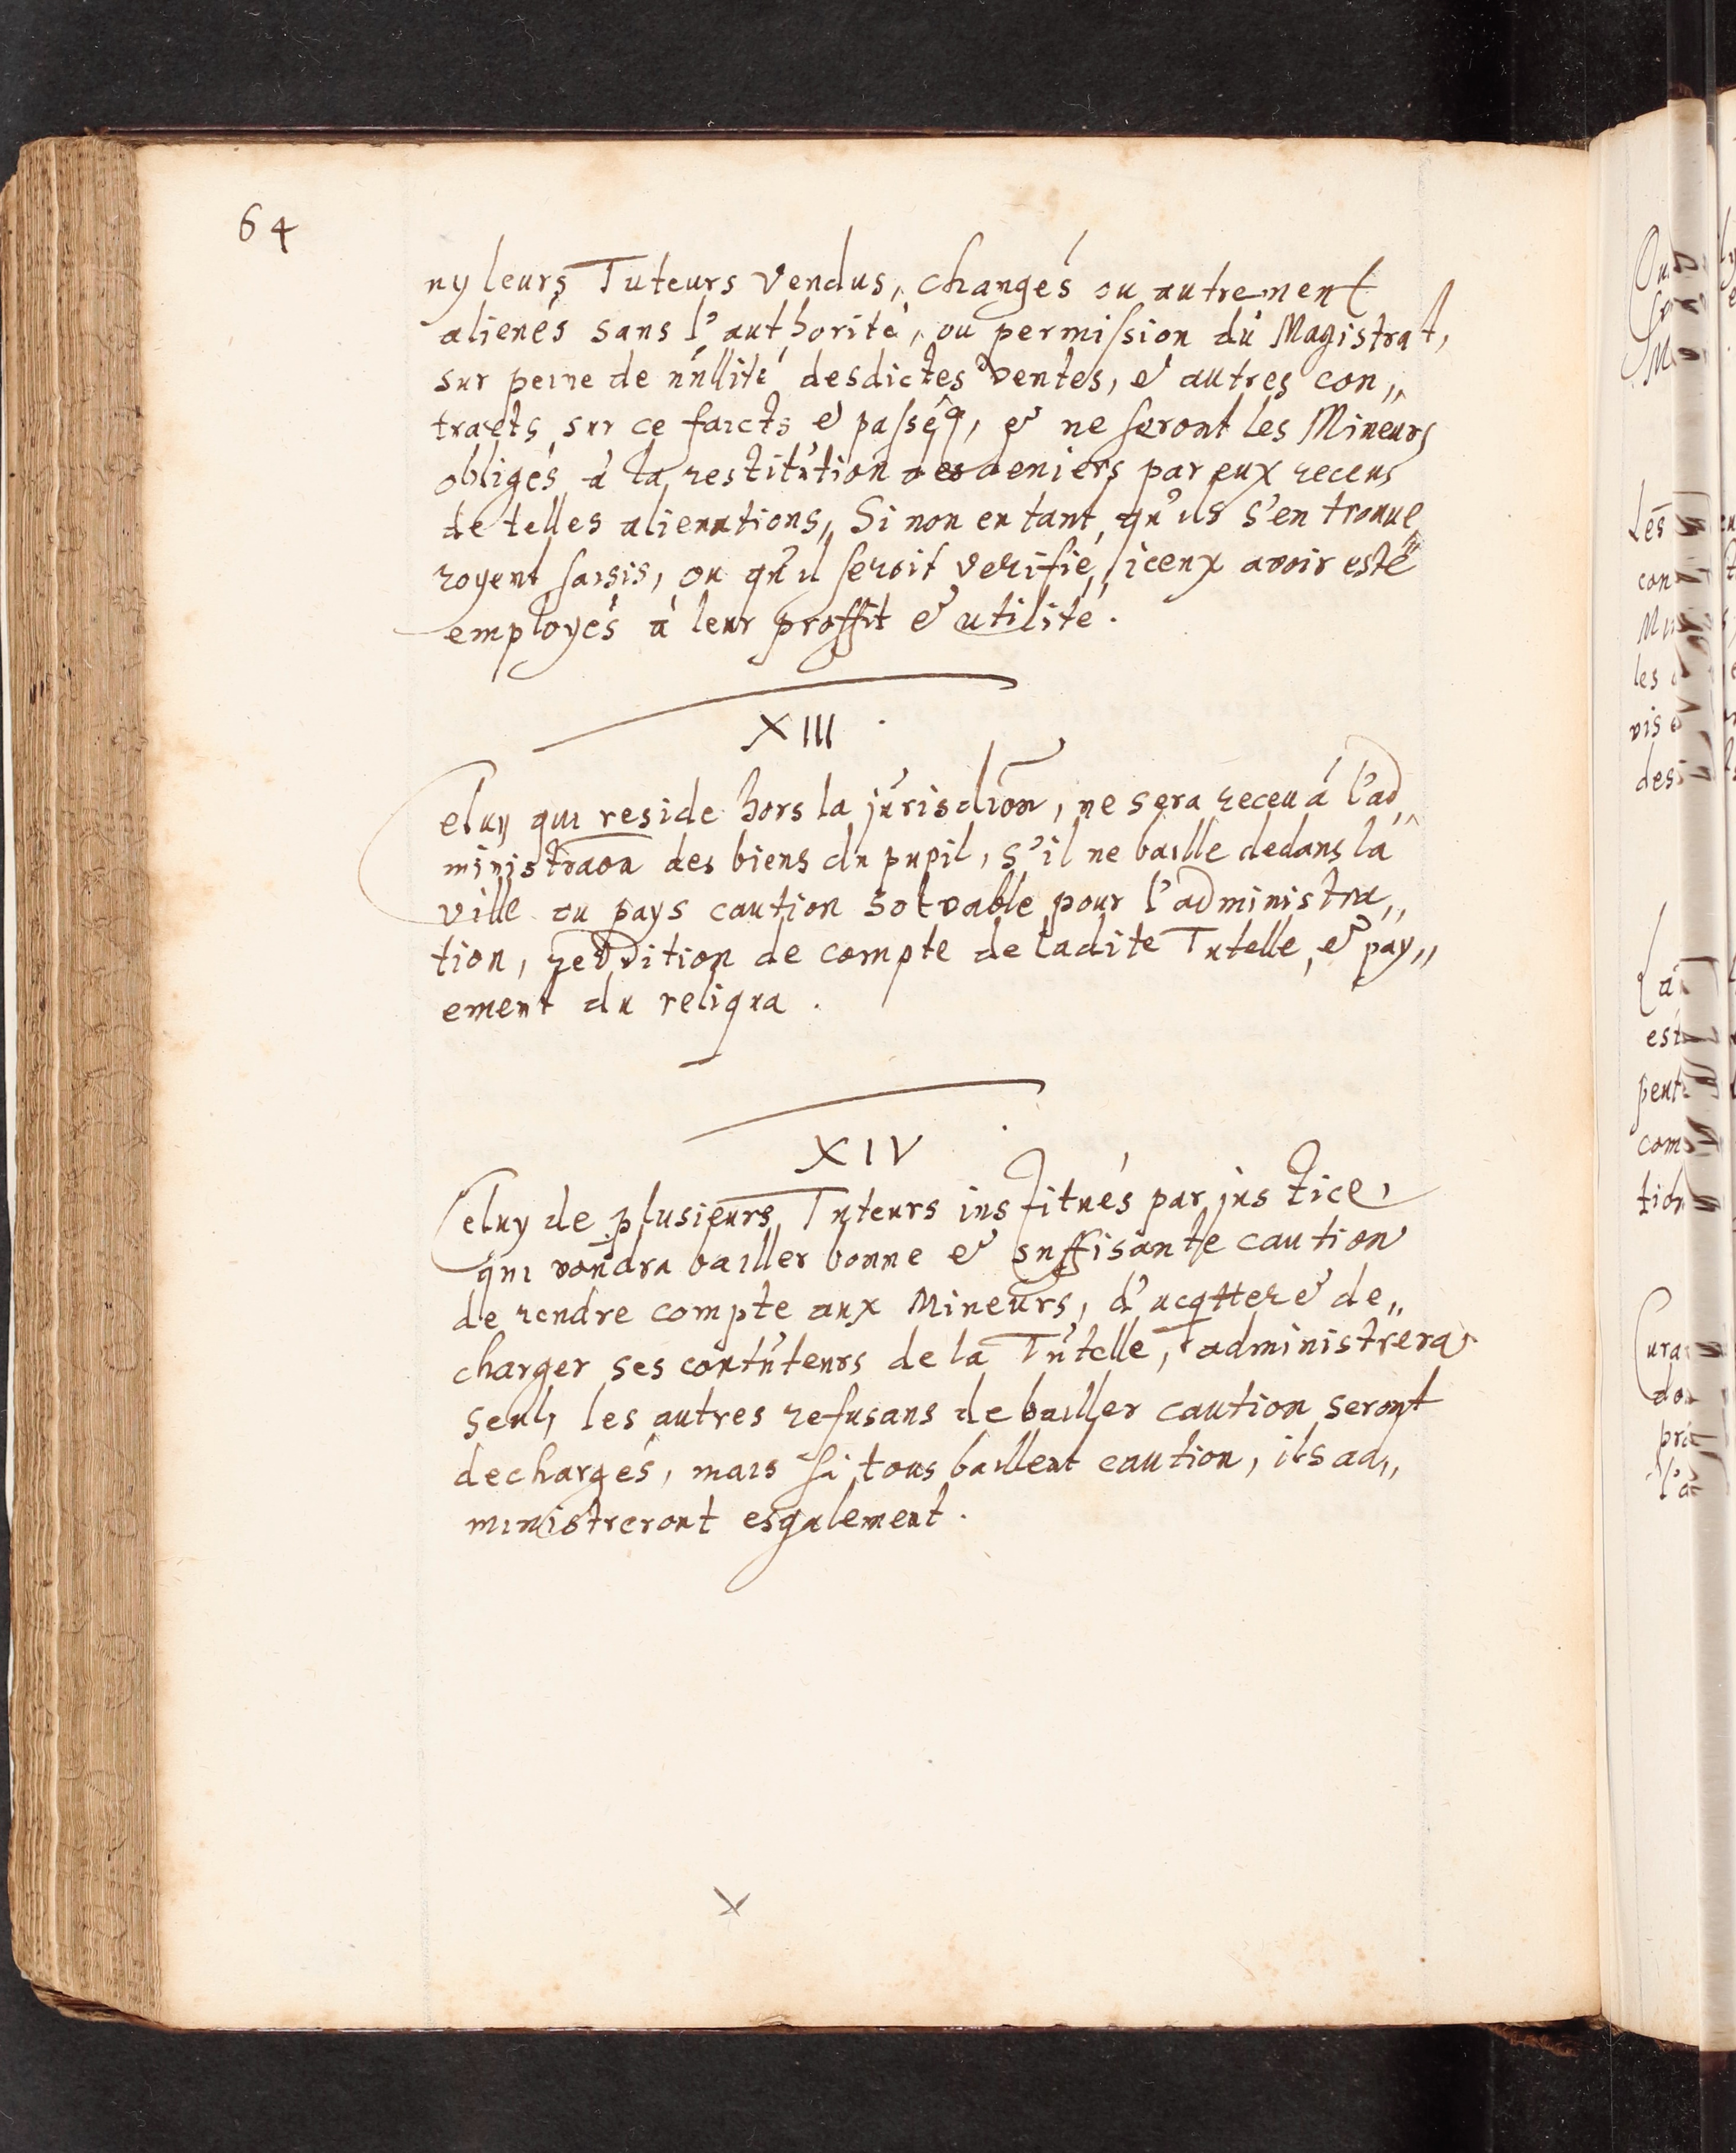 64
ny leurs Tuteurs vendus, changés ou autrement
alienés sans l'authorité, ou permission du Magistrat,
sur peine de nullité desdictes ventes, & autres con„
tracts sur ce faicts & passés, & ne seront les Mineurs
obligés à la restitution des deniers par eux receus
de telles alienations, Sinon en tant qu'ils s'en trouue„
royent saisis, ou qu'il seroit verifié, iceux avoir esté
employés à leur proffit & utilité.
XIII
Celuy qui reside hors la jurisdion, ne sera receu à l'ad
ministraon des biens du pupil, s'il ne baille dedans la
ville ou pays caution solvable pour l'administra„
tion, reddition de compte de ladite Tutelle, & pay„
ement du reliqua.
XIV
Celuy de plusieurs Tuteurs institués par justice,
qui voudra bailler bonne & suffisante caution
de rendre compte aux Mineurs, d'acqtter & de„
charger ses contuteurs de la Tutelle, administrera
seul, les autres refusans de bailler caution seront
dechargés, mais si tous baillent caution, ils ad„
ministreront esgalement.